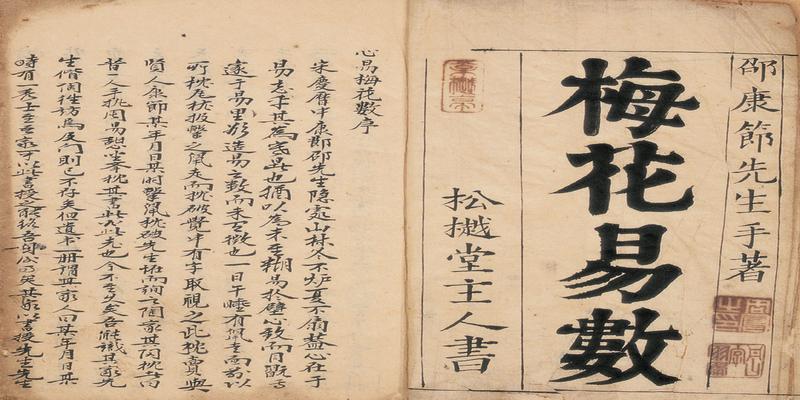 邵康節先生手著
梅花易數
松樾堂主人書
心易梅花數序
宋慶曆中康節邵先生隱處山林冬不炉夏不扇蓋心在于
易忘乎其為寒暑也猶以為未至糊易於壁心致而目玩焉
邃于易理欲造易之數而未有徵也一日午睡有鼠走而前以
所枕瓦枕投擊之鼠走而枕破覺中有字取視之此枕賣與
賢人康節某年月日某時擊鼠枕破先生怪而詢之陶家其陶枕者曰
昔一人手執周易憩坐舉枕其書必此老也今不至久矣吾能識其家先
生偕陶往訪焉及門則已不存矣但遺書一冊謂其家人曰某年月日某
時有一秀士至吾家可以此書授之能終吾身後事矣其家以書授先生先生